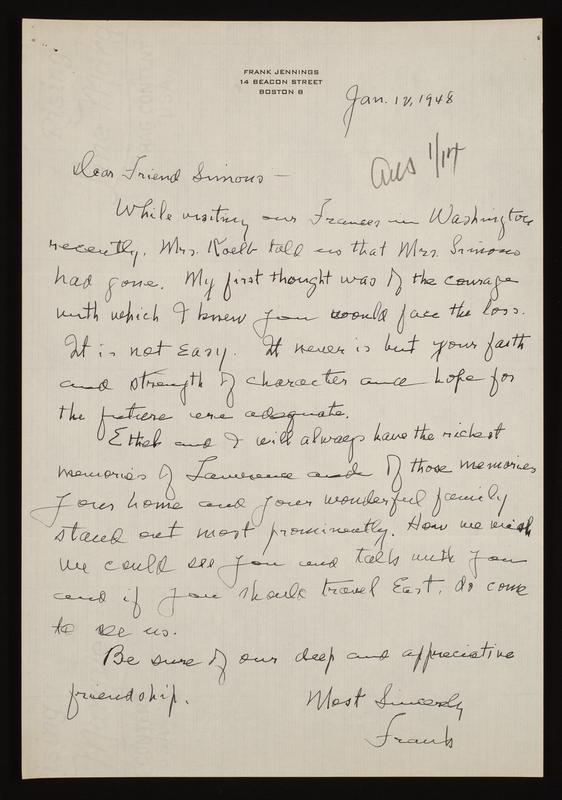 FRANK JENNINGS
14 BEACON STREET
BOSTON 8
Jan. 12, 1948
ans 1/14
Dear Friend Simons —
While visiting our Frances in Washington
recently, Mrs. Kolb told us that Mrs. Simons
had gone. My first thought was of the courage
with which I knew you would face the loss.
It is not easy. It never is but your faith
and strength of character and hope for
the future are adequate.
Ethel and I will always have the richest
memories of Lawrence and of those memories
your home and your wonderful family
stand out most prominently. How we wish
we could see you and talk with you
and if you should travel East, do come
to see us.
Be sure of our deep and appreciative
friendship.
Most Sincerely
Frank